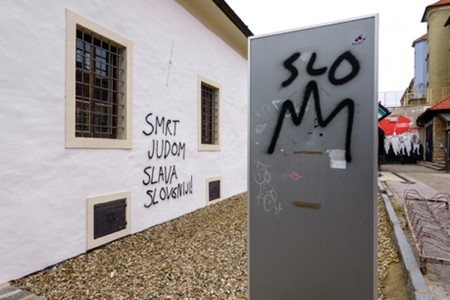 SMRT
JUDOM
SLAVA
SLOVENIJI!
SLO